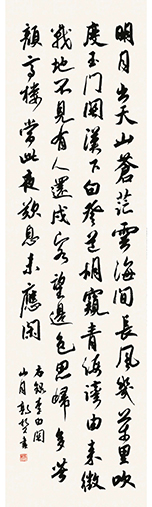 明月出天山蒼茫雲海間長風幾萬里吹
度玉門関漢下白登道胡窺青海湾由来徵
戰地不見有人還戍客望邊色思婦多苦
顏高樓當此夜歎息未應閑
右録李白関
山月